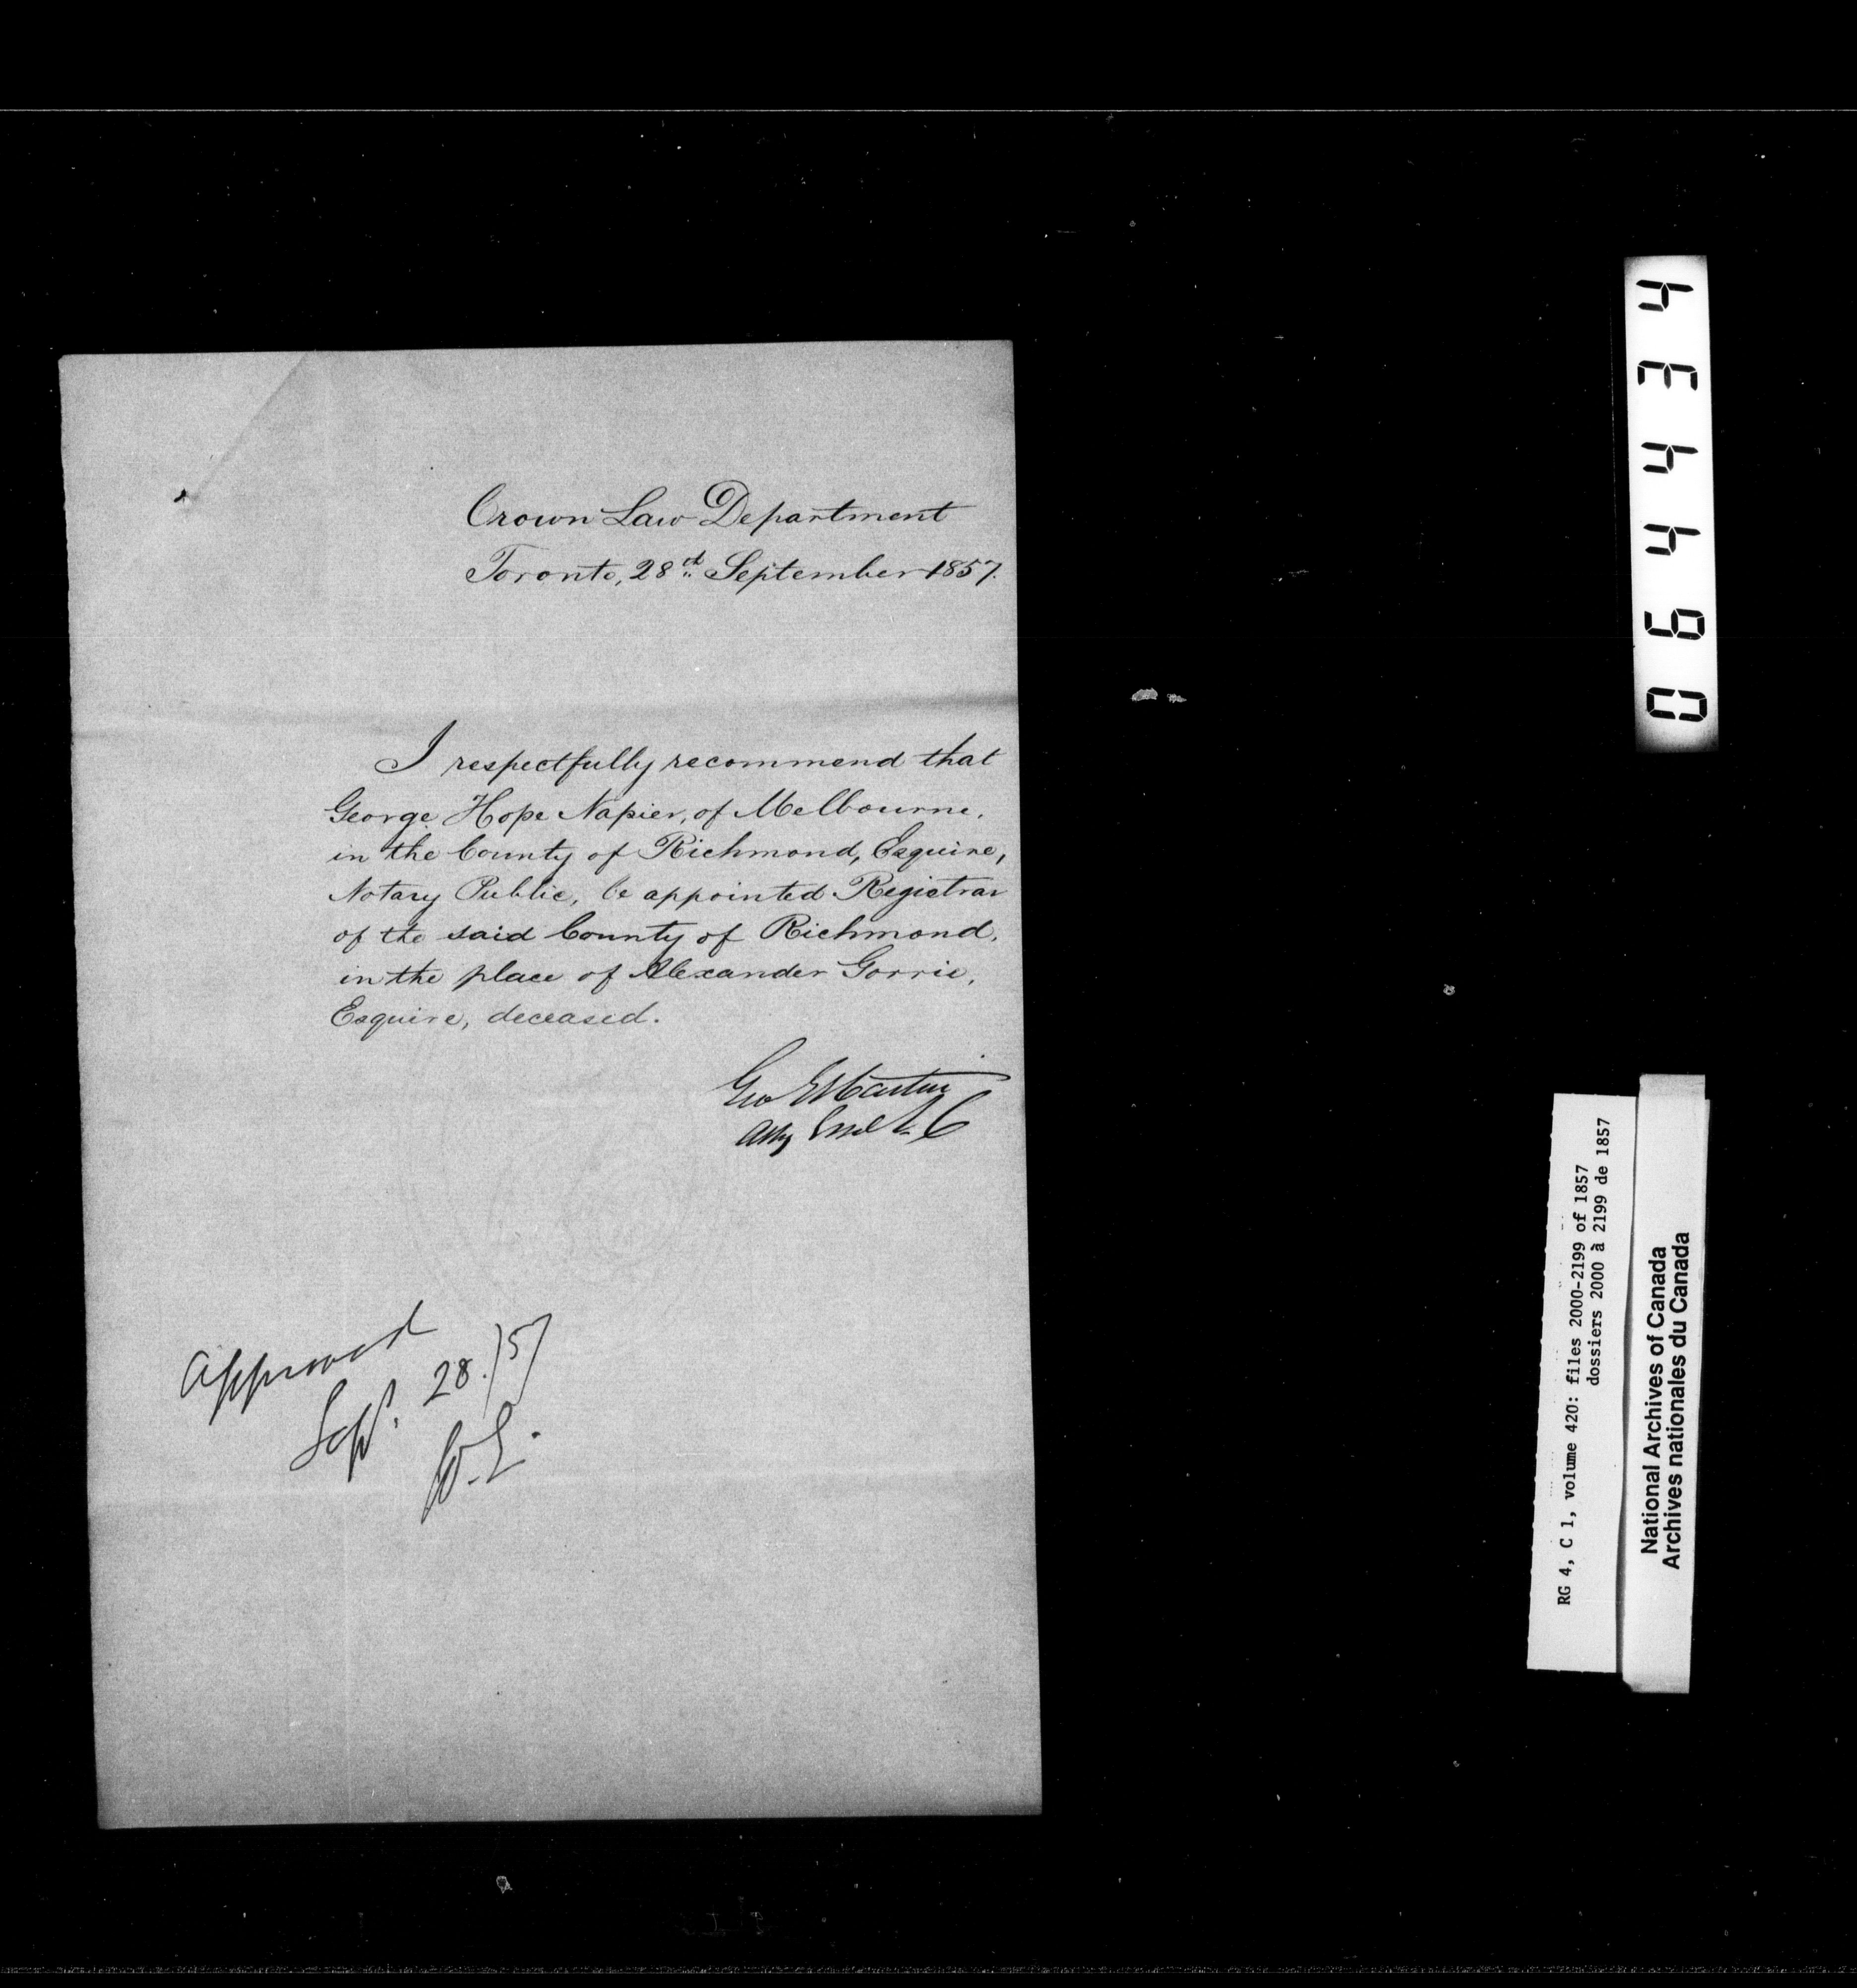 Crown Law Department
Toronto, 28th September 1857.
I respectfully recommend that
George Hope Napier, of Melbourne,
in the County of Richmond, Esquire,
Notary Public, be appointed Registrar
of the said County of Richmond,
in the place of Alexander Gorrie,
Esquire, deceased.
Geo E Cartier
Atty Genl L C
Approved
Sept. 28./57
W.E.
064434
RG 4, C 1, volume 420: files 2000-2199 of 1857
dossiers 2000 à 2199 de 1857
National Archives of Canada
Archives nationales du Canada